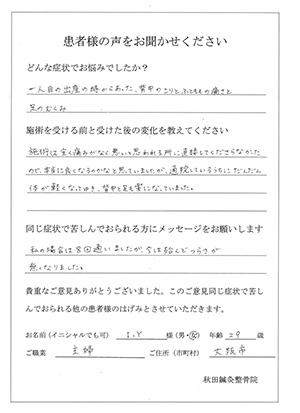 患者様の声をお聞かせください
どんな症状でお悩みでしたか?
一人目の出産の時からあった、背中のこりと、ふとももの痛さと
足のむくみ
施術を受ける前と受けた後の変化を教えてください
施術は全く痛みがなく悪いと思われる所に直接してくださらなかった
ので、本当に良くなるのかなと思っていましたが、通院しているうちにだんだん
体が軽くなってゆき、背中も足も楽になっていました。
同じ症状で苦しんでおられる方にメッセージをお願いします
私の場合は 回通いましたが、今は殆んどつらさが
無くなりました。
貴重なご意見ありがとうございました。このご意見同じ症状で苦し
んでおられる他の患者様のはげみとさせていただきます。
お名前(イニシャルでも可) 様(男・女) 年齢 29 歳
ご職業 主婦 ご住所(市町村) 大阪市
秋田鍼灸整骨院